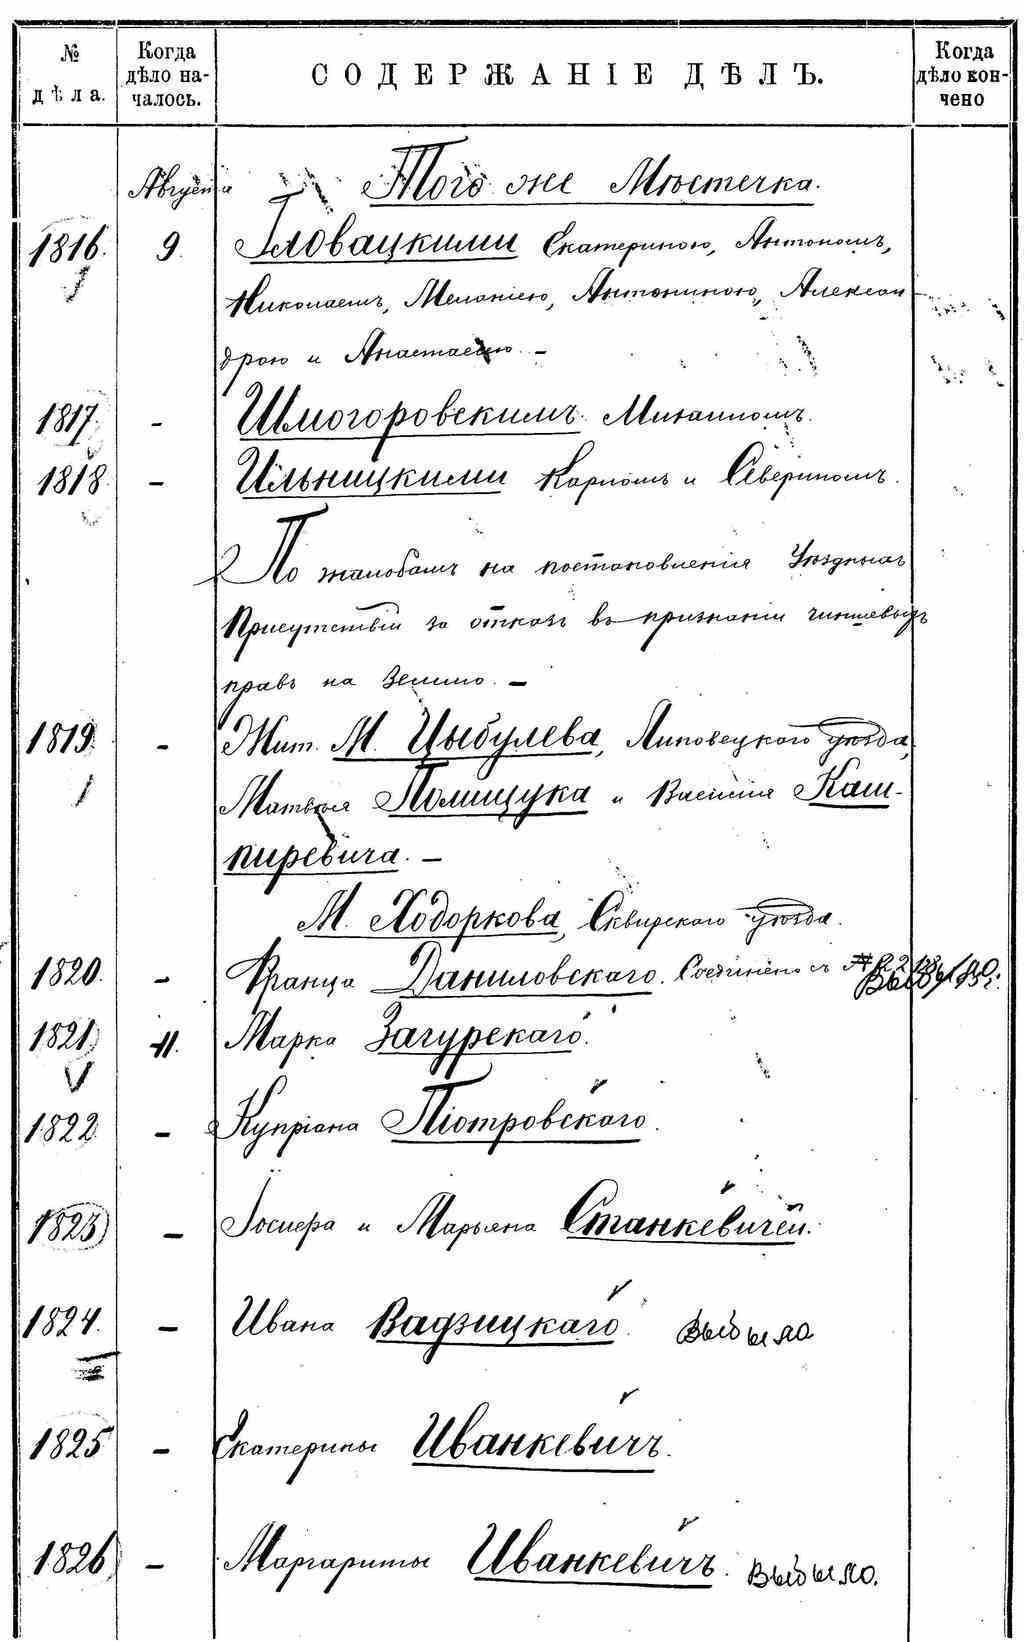 № дѣла.
Когда дѣло на-
чалось.
СОДЕРЖАНІЕ ДѢЛЪ.
Когда дѣло кон-
чено
Августа Того же Мѣстечка.
1816. 9. Гловацкими Екатериною, Антономъ,
Николаемъ, Меланіею, Антониною, Алексан
дрою и Анастасіею. –
1817. – Шмогоровскимъ Михаиломъ.
1818 – Ильницкими Карпомъ и Севериномъ.
По жалобамъ на постановленія Уѣздныхъ
Присутствій за отказъ въ признаніи чиншевыхъ
правъ на Землю. –
1819 – Жит. М. Цыбулева, Липовецкого уѣзда,
Матвѣя Полищука и Василія Каш-
пиревича. –
М. Ходоркова, Сквирскаго уѣзда.
1820. – Франца Даниловскаго. Соединено съ № Выбыло.
1821 11. Марка Загурскаго.
1822 – Купріана Піотровскаго.
1823 – Іосифа и Марьяна Станкевичей.
1824. – Ивана Вадзицкаго. Выбыло
1825 – Екатерины Иванкевичъ.
1826 – Маргариты Иванкевичъ. Выбыло.